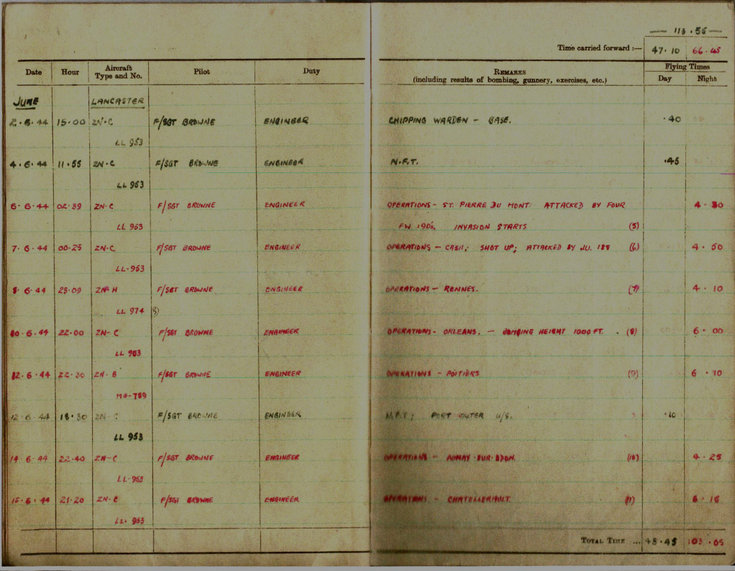 — 113 · 55 —
Time carried forward :— 47·10 66·45
Date Hour Aircraft Type and No. Pilot Duty REMARKS (including results of bombing, gunnery, exercises, etc.) Flying Times Day Night
JUNE LANCASTER
2·6·44 15·00 ZN·C F/SGT BROWNE ENGINEER CHIPPING WARDEN — BASE. ·40
LL 953
4·6·44 11·55 ZN·C F/SGT BROWNE ENGINEER N.F.T. ·45
LL 953
6·6·44 02·39 ZN·C F/SGT BROWNE ENGINEER OPERATIONS - ST. PIERRE DU MONT ATTACKED BY FOUR 4·30
LL 953 FW 190s, INVASION STARTS (5)
7·6·44 00·25 ZN·C F/SGT BROWNE ENGINEER OPERATIONS — CAEN; SHOT UP; ATTACKED BY JU. 188 (6) 4·50
LL·953
8·6·44 23·09 ZN·H F/SGT BROWNE ENGINEER OPERATIONS — RENNES. (7) 4·10
LL 974
10·6·44 22·00 ZN·C F/SGT BROWNE ENGINEER OPERATIONS - ORLEANS. — BOMBING HEIGHT 1000 FT. (8) 6·00
LL 953
12·6·44 22·30 ZN·B F/SGT BROWNE ENGINEER OPERATIONS — POITIERS (9) 6·10
12·6·44 18·30 ZN·C F/SGT BROWNE ENGINEER N.F.T; PORT OUTER U/S. ·10
LL 953
14·6·44 22·40 ZN·C F/SGT BROWNE ENGINEER OPERATIONS — AUNAY·SUR·ODON. (10) 4·25
LL·953
15·6·44 21·20 ZN·C F/SGT BROWNE ENGINEER OPERATIONS — CHATELLERAULT. (11) 6·15
LL·953
TOTAL TIME ... 48·45 103·05